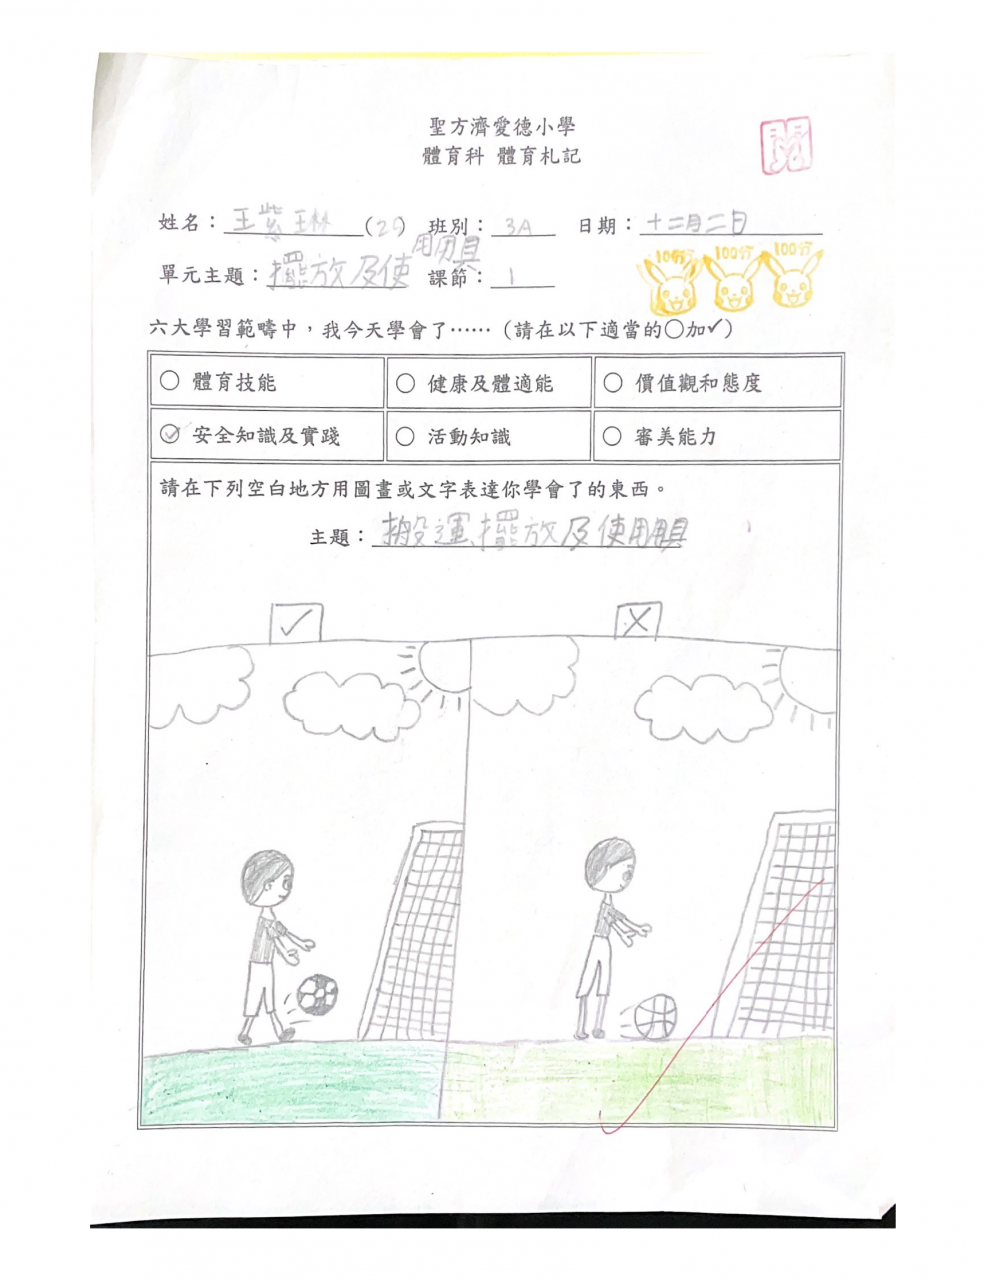 聖方濟愛德小學
體育科 體育札記
閱
姓名：王紫琳(25) 班別：3A 日期：十二月二日
單元主題：擺放及使用用具 課節：1
100分 100分 100分
六大學習範疇中，我今天學會了……（請在以下適當的○加✓）
○ 體育技能 ○ 健康及體適能 ○ 價值觀和態度
✓ 安全知識及實踐 ○ 活動知識 ○ 審美能力
請在下列空白地方用圖畫或文字表達你學會了的東西。
主題：搬運、擺放及使用用具
✓ ✗